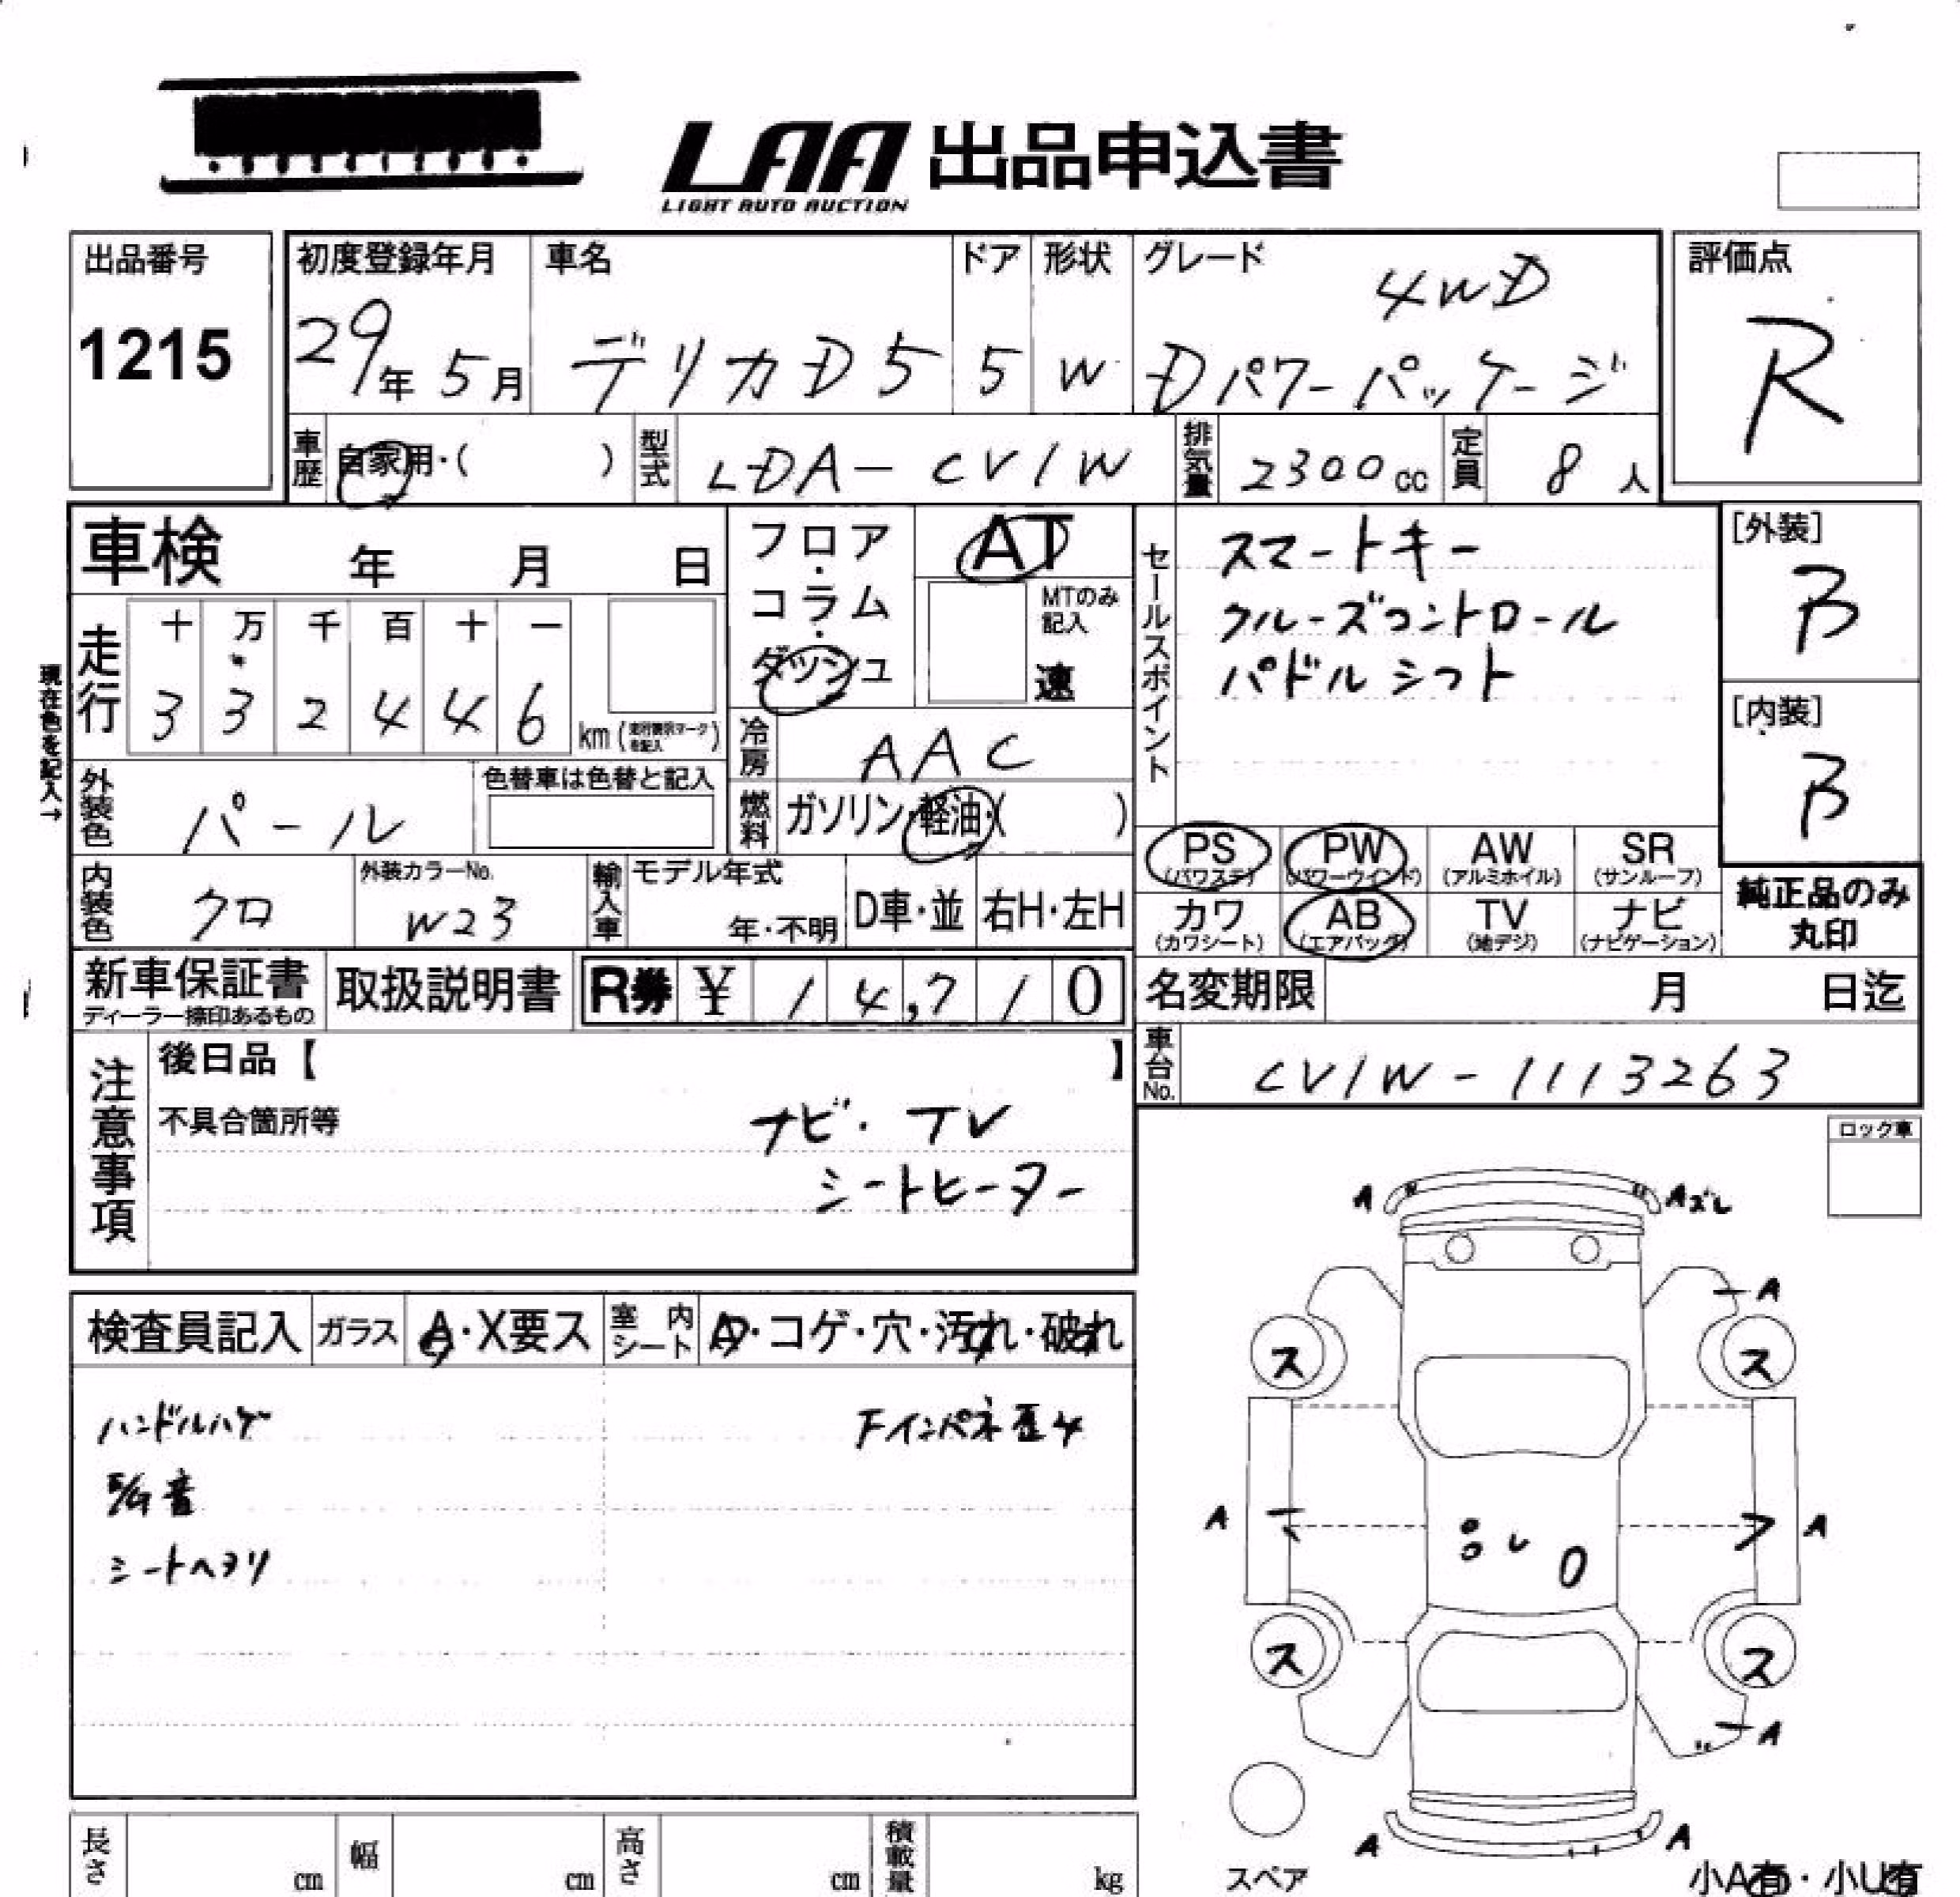 LAA 出品申込書
LIGHT AUTO AUCTION
出品番号
1215
初度登録年月
29年 5月
車名
デリカD5
ドア
5
形状
W
グレード
4WD
Dパワーパッケージ
評価点
R
車歴 自家用・( )
型式 LDA-CV1W
排気量 2300cc
定員 8人
車検 年 月 日
フロア・コラム・ダッシュ
AT
MTのみ記入
速
セールスポイント
スマートキー
クルーズコントロール
パドルシフト
[外装]
B
[内装]
B
現在色を記入→
走行
十 万 千 百 十 一
3 3 2 4 4 6 km
冷房 AAC
外装色 パール
色替車は色替と記入
燃料 ガソリン・軽油・( )
内装色 クロ
外装カラーNo.
W23
輸入車 モデル年式
年・不明
D車・並
右H・左H
PS (パワステ)
PW (パワーウインド)
AW (アルミホイル)
SR (サンルーフ)
カワ (カワシート)
AB (エアバッグ)
TV (地デジ)
ナビ (ナビゲーション)
純正品のみ
丸印
新車保証書
ディーラー捺印あるもの
取扱説明書
R券 ¥ 14,710
名変期限 月 日迄
車台No. CV1W-1113263
注意事項
後日品【 】
不具合箇所等
ナビ・TV
シートヒーター
ロック車
検査員記入
ガラス A・X要ス
室内シート A・コゲ・穴・汚れ・破れ
ハンドルハゲ
E/G音
シートヘタリ
Fインパネ歪
A
Aズレ
A
ス
ス
A
A
ス
ス
A
A
A
スペア
小A有・小U有
長さ cm
幅 cm
高さ cm
積載量 kg